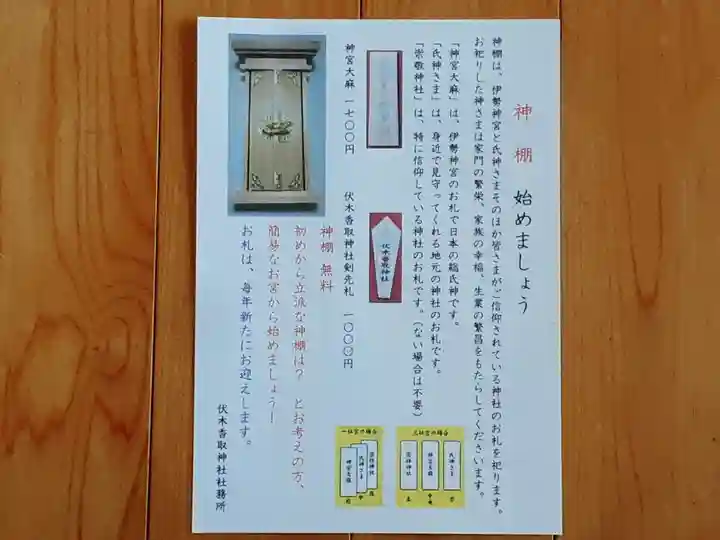 神棚 始めましょう
神棚は、伊勢神宮と氏神さまそのほか皆さまがご信仰されている神社のお札を祀ります。
お祀りした神さまは家門の繁栄、家族の幸福、生業の繁昌をもたらしてくださいます。
「神宮大麻」は、伊勢神宮のお札で日本の総氏神です。
「氏神さま」は、身近で見守ってくれる地元の神社のお札です。
「崇敬神社」は、特に信仰している神社のお札です。(ない場合は不要)
神宮大麻 一七〇〇円
伏木香取神社
伏木香取神社剣先札 一〇〇〇円
神棚 無料
初めから立派な神棚は? とお考えの方、
簡易なお宮から始めましょうー
お札は、毎年新たにお迎えします。
伏木香取神社社務所
三社宮の場合
氏神さま
神宮大麻
崇敬神社
右
中央
左
一社宮の場合
崇敬神社
氏神さま
神宮大麻
奥
中
前